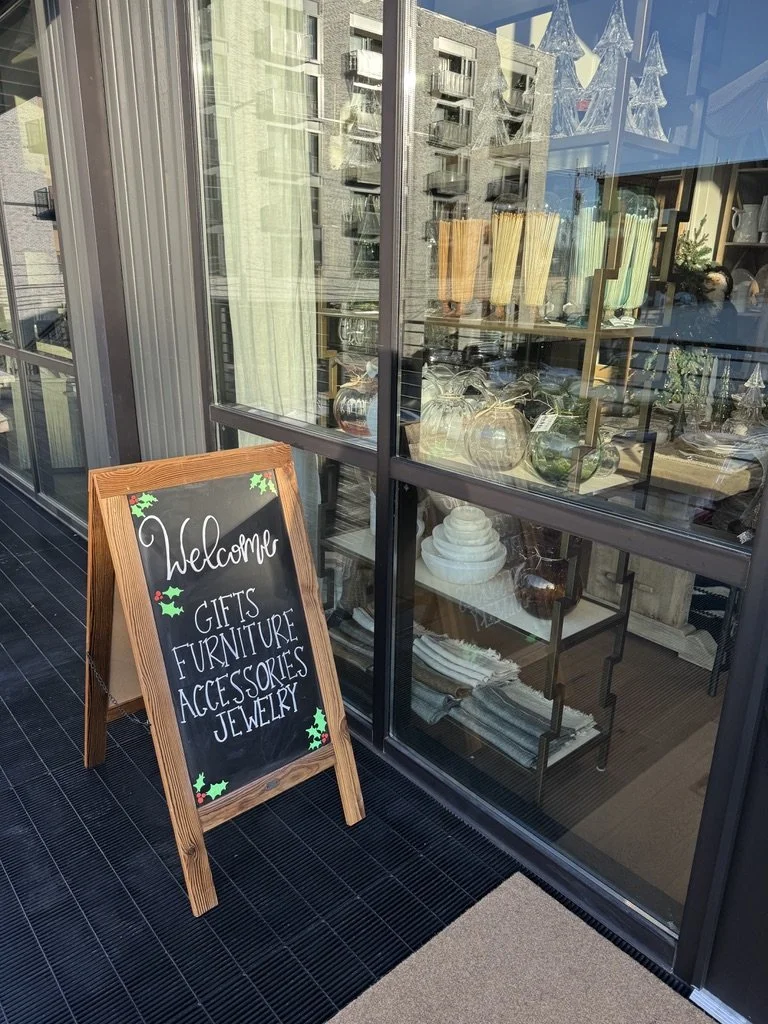 Welcome
GIFTS
FURNITURE
ACCESSORIES
JEWELRY